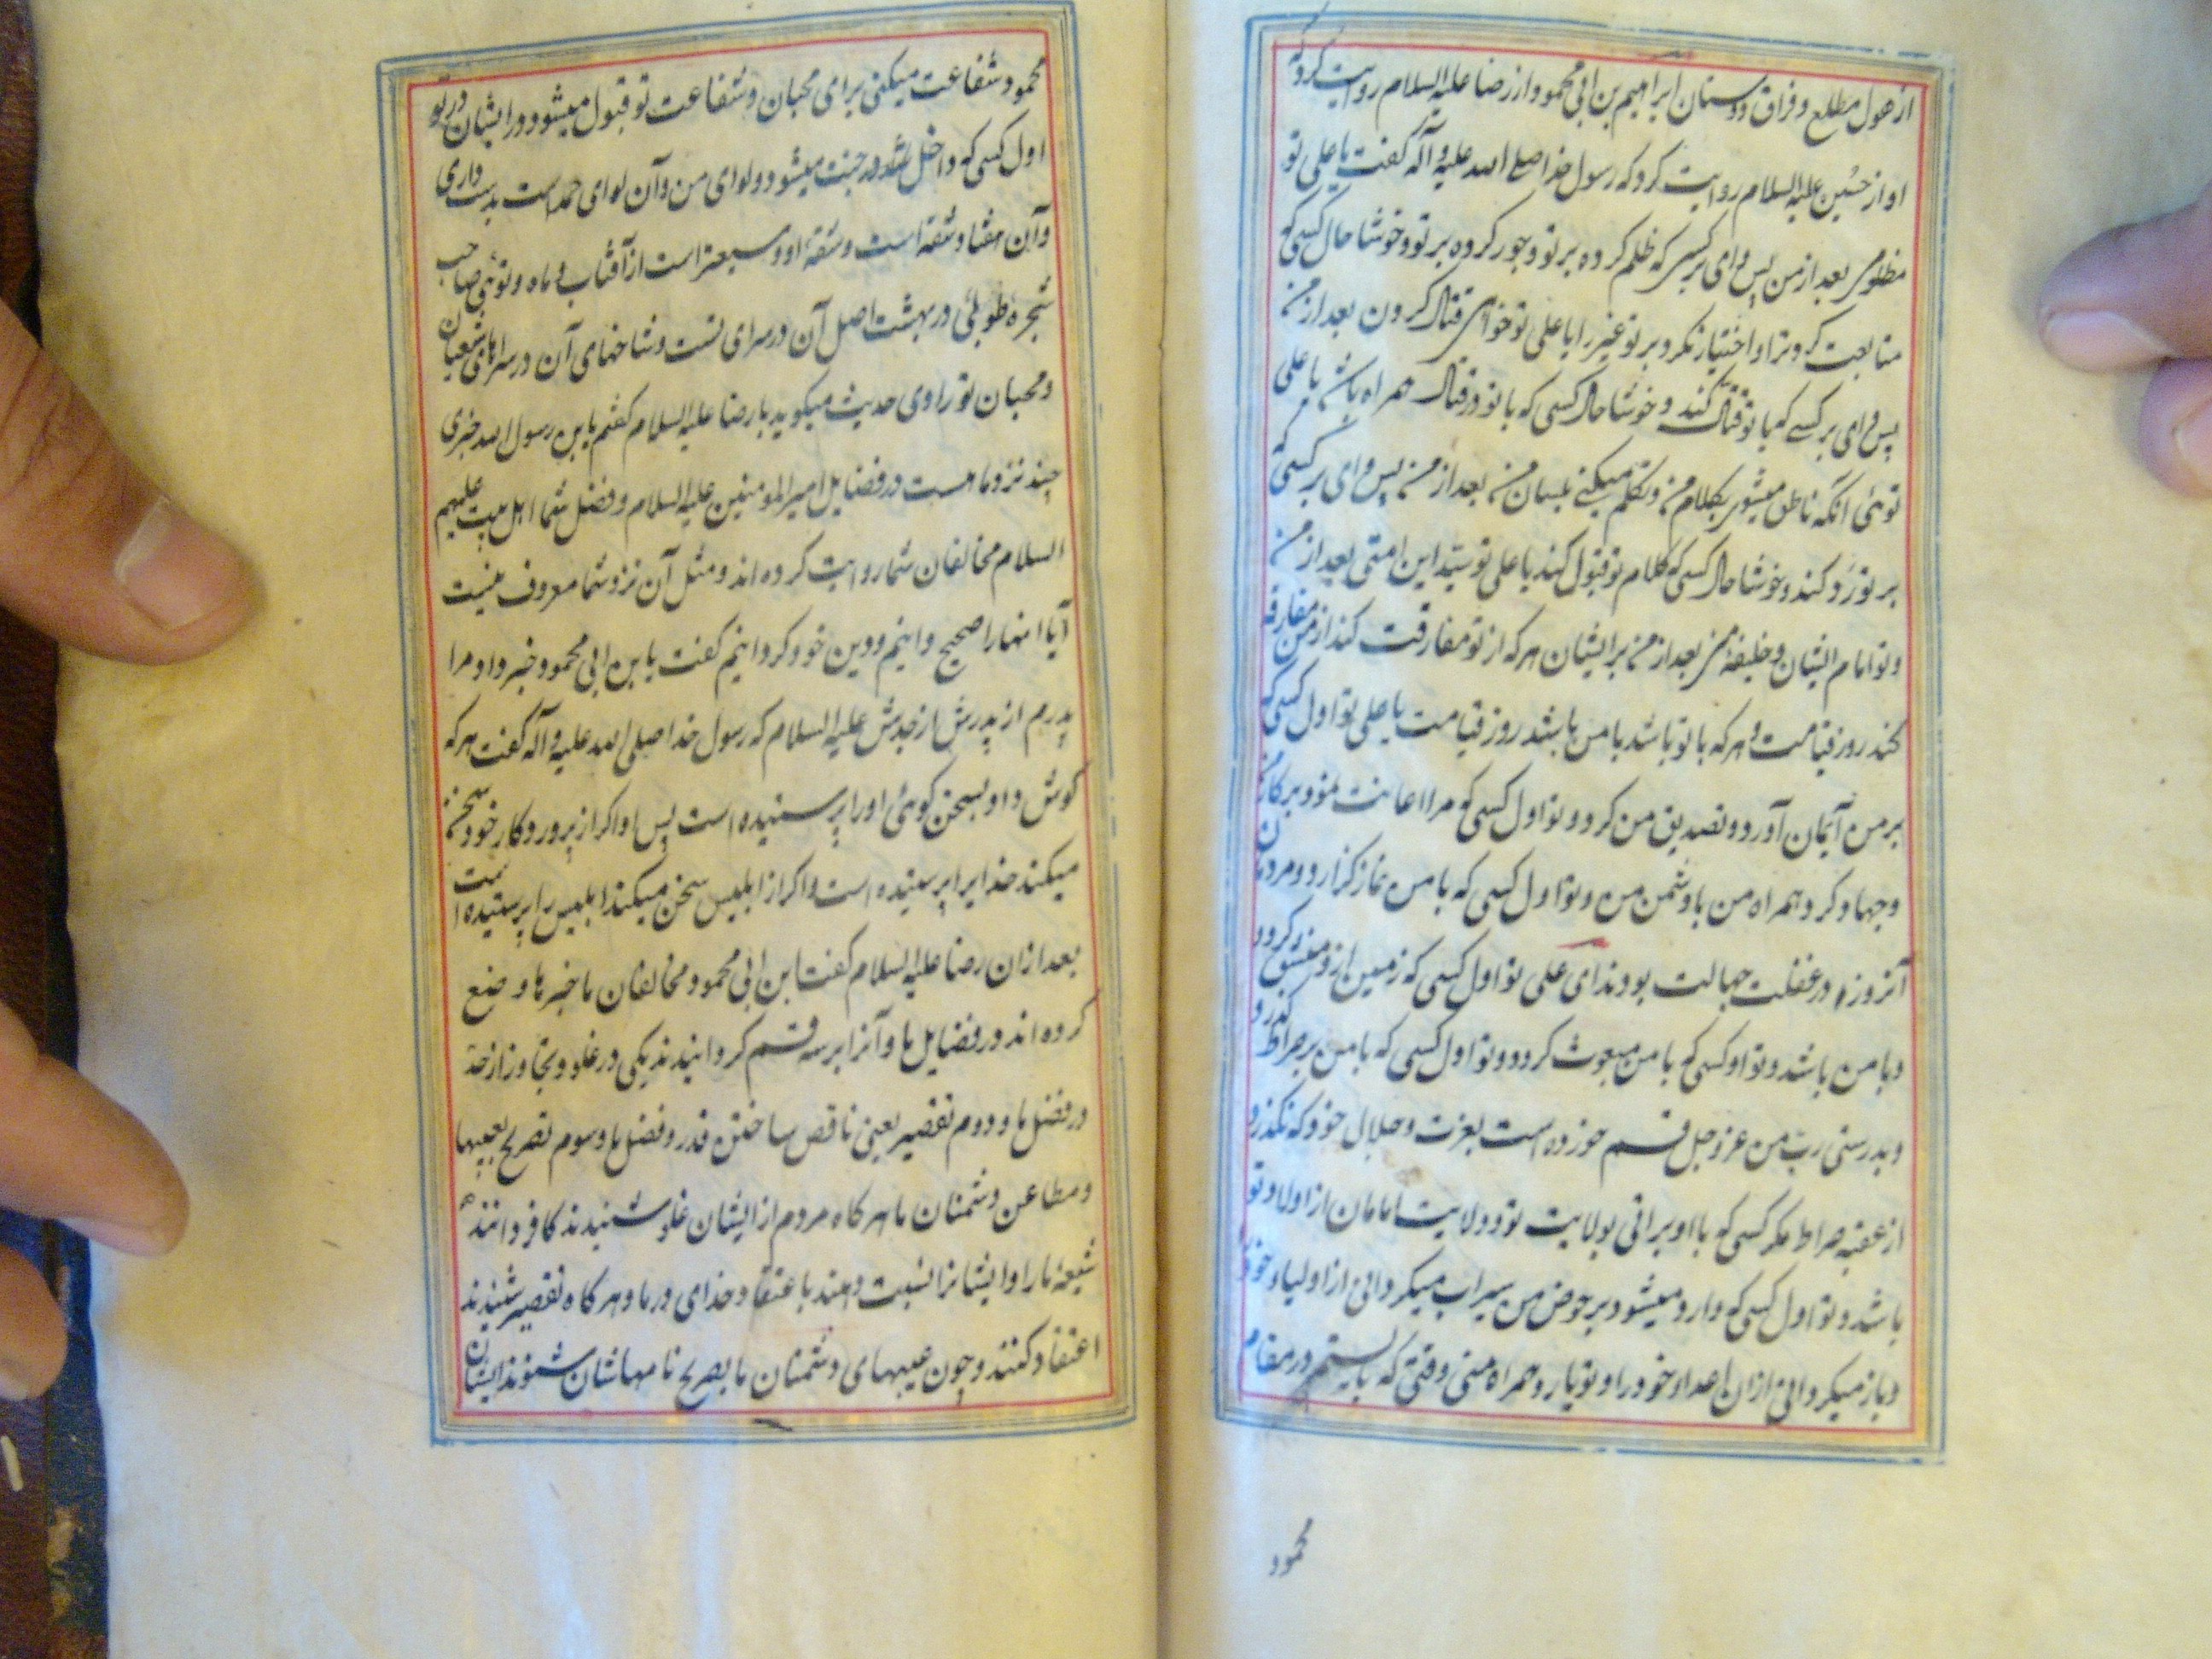 از هول مطلع و فراق دوستان ابراهیم بن ابی محمود از رضا علیه السلام روایت کرد که
او از حسین علیه السلام روایت کرد که رسول خدا صلی الله علیه و آله گفت یا علی تو
مظلومی بعد از من پس وای بر کسی که ظلم کرده بر تو و جور کرده بر تو و خوشا حال کسی که
متابعت کرد ترا و اختیار نکرد بر تو غیر را یا علی تو خواهی قتال کردن بعد از من
پس وای بر کسے که با تو قتال کند و خوشا حال کسی که با تو در قتال همراه باشد یا علی
توئی آنکه ناطق میشوی بکلام من و تکلم میکنی بلسان من بعد از من پس وای بر کسی که
بر تو رد کند و خوشا حال کسی که کلام تو قبول کند یا علی تو سید این امتی بعد از من
و تو امام ایشان و خلیفه منی بعد از من بر ایشان هر که از تو مفارقت کند از من مفارقه
کند روز قیامت و هر که با تو باشد با من باشد روز قیامت یا علی تو اول کسی که
بر من آیمان آورد و تصدیق من کرد و تو اول کسی که مرا اعانت نمود بر کار من
و جهاد کرد همراه من با دشمن من و تو اول کسی که با من نماز کزارد و مردمان
آنروز در غفلت جهالت بودند ای علی تو اول کسی که زمین از و منشق کردد
و با من باشد و تو او کسی که با من مبعوث کردد و تو اول کسی که با من بر صراط کذرد
و بدرستی رب من عز و جل قسم خورده است بعزت و جلال خود که نکذرد
از عقبه صراط مکر کسی که با او براتی بولایت تو و ولایت امامان از اولاد تو
باشد و تو اول کسی که وارد میشود بر حوض من سیراب میکردانی از اولیاء خود
و باز میکردانی از ان اعداء خود را و تو یار و همراه منی وقتی که بایستم در مقام
محمود
محمود و شفاعت میکنی برای محبان و شفاعت تو قبول میشود در ایشان و تو
اول کسی که داخل در جنت میشود و لوای من و آن لوای حمد است بدست داری
و آن هفتاد شقه است و شقۀ او وسیعتر است از آفتاب و ماه و توئی صاحب
شجره طوبی در بهشت اصل آن در سرای تست و شاخهای آن در سراهای شیعیان
و محبان تو راوی حدیث میکوید با رضا علیه السلام کفتم یا بن رسول الله خبری
چند نزد ما هست در فضایل امیر المومنین علیه السلام و فضل شما اهل بیت علیهم
السلام مخالفان شما روایت کرده اند و مثل آن نزد شما معروف نیست
آیا انها را صحیح دانیم و دین خود کردانیم کفت یا بن ابی محمود خبر داد مرا
پدرم از پدرش از جدش علیه السلام که رسول خدا صلی الله علیه و آله کفت هر که
کوش داد بسخن کوئی او را پرستیده است پس او اکر از پرورد کار خود سخن
میکند خدایرا پرستیده است و اکر از ابلیس سخن میکند ابلیس را پرستیده است
بعد از ان رضا علیه السلام کفت ابن ابی محمود مخالفان ما خبرها وضع
کرده اند در فضایل ما و آنرا بر سه قسم کردانیدند یکی در غلو و تجاوز از حد
در فضل ما و دوم تقصیر یعنی ناقص ساختن قدر و فضل ما و سوم تصریح بعیبها
و مطاعن دشمنان ما هر کاه مردم از ایشان غلو شنیدند کافر دانند
شیعۀ ما را و ایشانرا نسبت دهند باعتقاد خدای در ما و هر کاه تقصیر شنیدند
اعتقاد کنند و چون عیبهای دشمنان ما بصریح نامهاشان شنوند ایشان